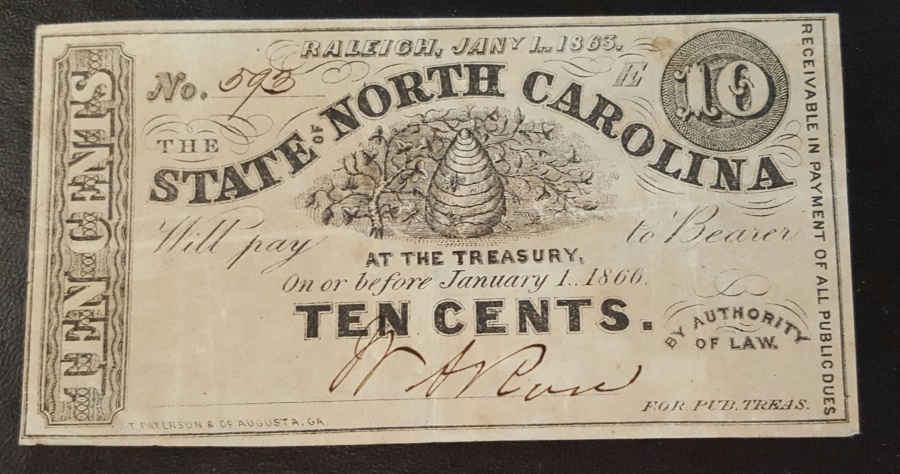 RALEIGH, JANY 1.. 1863.
No. 593
E
10
THE
STATE OF NORTH CAROLINA
Will pay to Bearer
AT THE TREASURY,
On or before January 1.. 1866.
TEN CENTS.
BY AUTHORITY
OF LAW.
FOR PUB. TREAS.
J.T. PATERSON & Co AUGUSTA, GA.
TEN CENTS
RECEIVABLE IN PAYMENT OF ALL PUBLIC DUES